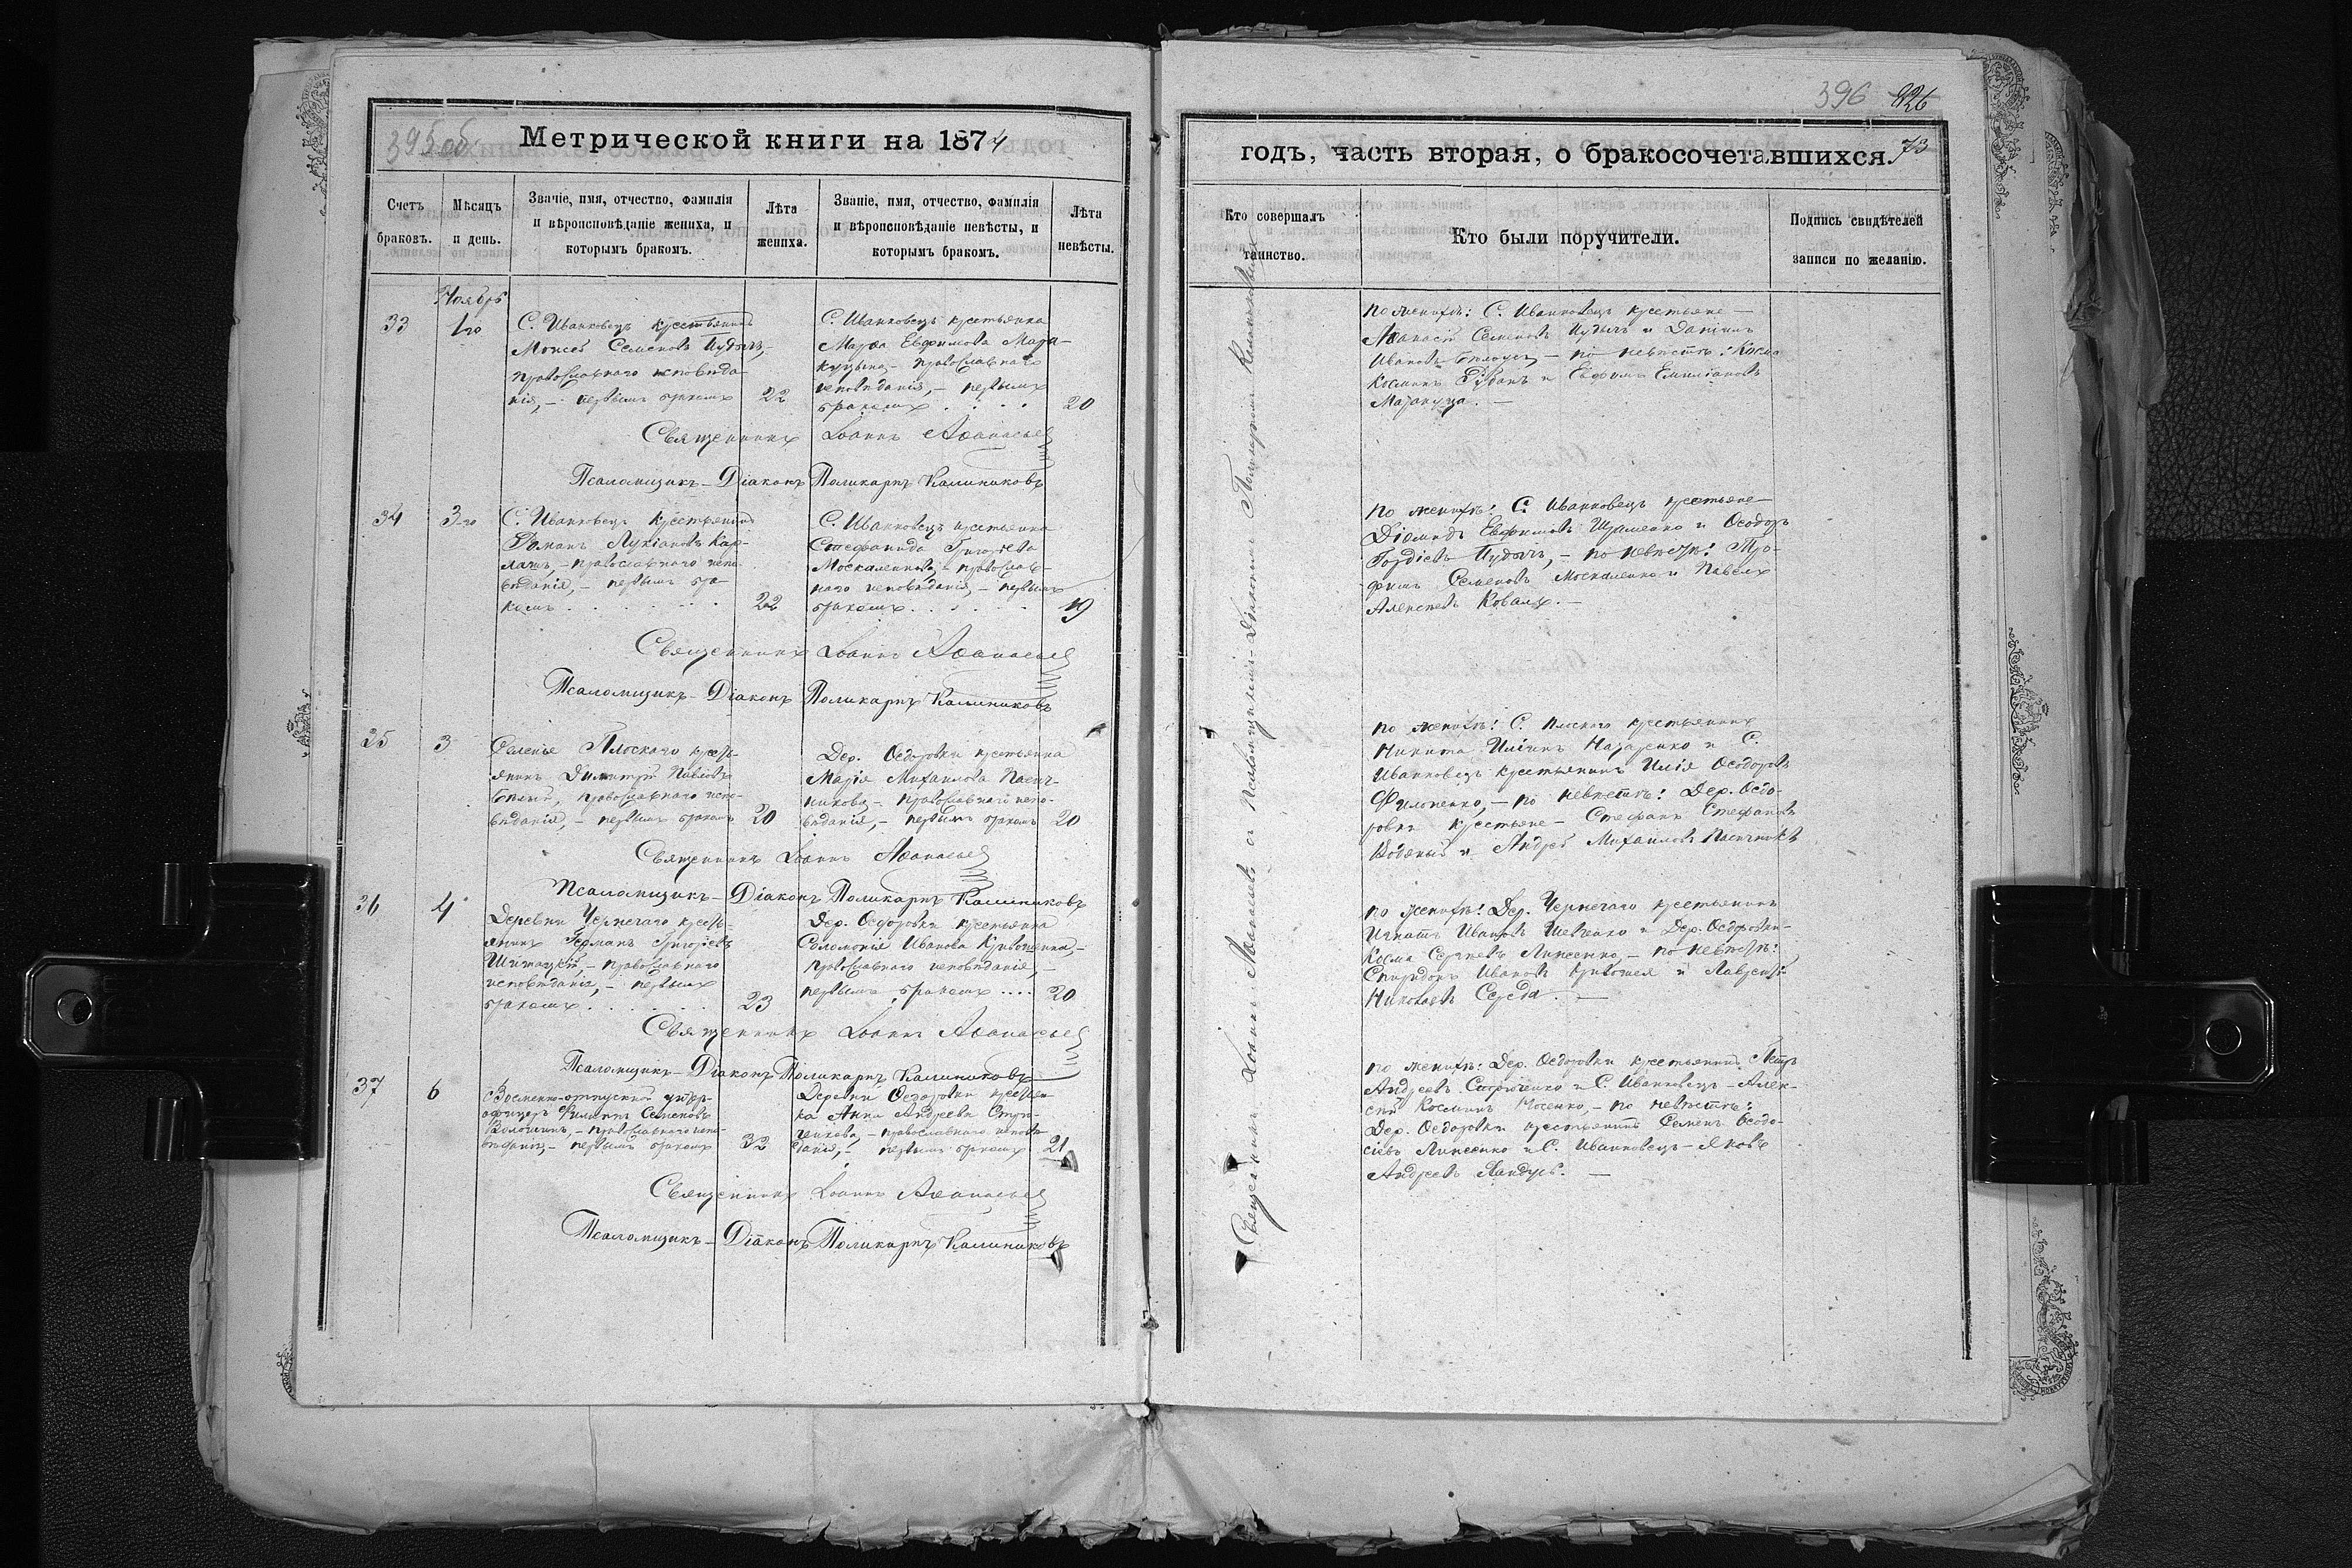 395 об
Метрической книги на 1874
Счетъ браковъ.
Мѣсяцъ и день.
Званіе, имя, отчество, фамилія и вѣроисповѣданіе жениха, и которымъ бракомъ.
Лѣта жениха.
Званіе, имя, отчество, фамилія и вѣроисповѣданіе невѣсты, и которымъ бракомъ.
Лѣта невѣсты.
Ноябрь
33
1го
С. Иванковецъ крестьянинъ
Моисей Семеновъ
православнаго исповѣда-
нія, – первымъ бракомъ
22
С. Иванковецъ крестьянка
Марѳа Евфимова Мара-
куцына – православнаго
исповѣданія, – первымъ
бракомъ . . . .
20
Священникъ Іоаннъ Аѳанасьевъ
Псаломщикъ – Діаконъ Поликарпъ Калиниковъ
34
3го
С. Иванковецъ крестьянинъ
Романъ Лукіановъ Кар-
лашъ, – православнаго испо-
вѣданія, – первымъ бра-
комъ . . . . . .
22
С. Иванковецъ крестьянка
Стефанида Григорьева
Москаленкова, – православ-
наго исповѣданія, – первымъ
бракомъ . . . . . .
19
Священникъ Іоаннъ Аѳанасьевъ
Псаломщикъ – Діаконъ Поликарпъ Калиниковъ
35
3
Селенія Плоскаго кресть-
янинъ Димитрій Павловъ
Бѣлый, православнаго испо-
вѣданія, – первымъ бракомъ
20
Дер. Ѳедоровки крестьянка
Марія Михаилова Пасѣч-
никова, – православнаго испо-
вѣданія, – первымъ бракомъ
20
Священникъ Іоаннъ Аѳанасьевъ
Псаломщикъ – Діаконъ Поликарпъ Калиниковъ
36
4
Деревни Чернечаго кресть-
янинъ Германъ Григорьевъ
православнаго
исповѣданія, – первымъ
бракомъ . . . . . .
23
Дер. Ѳедоровки крестьянка
Соломонія Иванова Кривошеина, –
православнаго исповѣданія, –
первымъ бракомъ ....
20
Священникъ Іоаннъ Аѳанасьевъ
Псаломщикъ – Діаконъ Поликарпъ Калиниковъ
37
6
Временно-отпускной унтеръ-
офицеръ Филиппъ Семеновъ
Волошинъ, – православнаго испо-
вѣданія, – первымъ бракомъ
32
Деревни Ѳедоровки крестьян-
ка Анна Андреева
православнаго исповѣ-
данія, – первымъ бракомъ
21
Священникъ Іоаннъ Аѳанасьевъ
Псаломщикъ – Діаконъ Поликарпъ Калиниковъ
396 826
годъ, часть вторая, о бракосочетавшихся.
73
Кто совершалъ таинство.
Кто были поручители.
Подпись свидѣтелей записи по желанію.
Священникъ Іоаннъ Аѳанасьевъ съ Псаломщикомъ – Діакономъ Поликарпомъ Калиниковымъ
По женихѣ: С. Иванковецъ крестьяне –
Аѳанасій Семеновъ и Даніилъ
Ивановъ – по невѣстѣ: Косма
Косминъ Рубанъ и Евфимъ Емиліановъ
Маракуца. –
По женихѣ: С. Иванковецъ крестьяне –
Діомидъ Евфимовъ и Ѳеодоръ
Гордіевъ – по невѣстѣ: Тро-
фимъ Семеновъ Москаленко и Павелъ
Алексѣевъ Коваль. –
По женихѣ: С. Плоскаго крестьянинъ
Никита Ильинъ Назаренко и С.
Иванковецъ крестьянинъ Илія Ѳеодоровъ
Филоненко, – по невѣстѣ: Дер. Ѳедо-
ровки крестьяне – Стефанъ Стефановъ
Водяный и Андрей Михаиловъ Пасѣчникъ
По женихѣ: Дер. Чернечаго крестьянинъ
Игнатъ Ивановъ Шевченко и Дер. Ѳедоровки –
Косма Сергѣевъ Лисенко, – по невѣстѣ:
Спиридонъ Ивановъ Кривошея и Лаврентій
Николаевъ Середа. –
По женихѣ: Дер. Ѳедоровки крестьянинъ Петръ
Андреевъ и С. Иванковецъ – Алек-
сѣй Косминъ Носенко, – по невѣстѣ:
Дер. Ѳедоровки крестьянинъ Семенъ Ѳеодо-
сіевъ Лисенко и С. Иванковецъ – Яковъ
Андреевъ